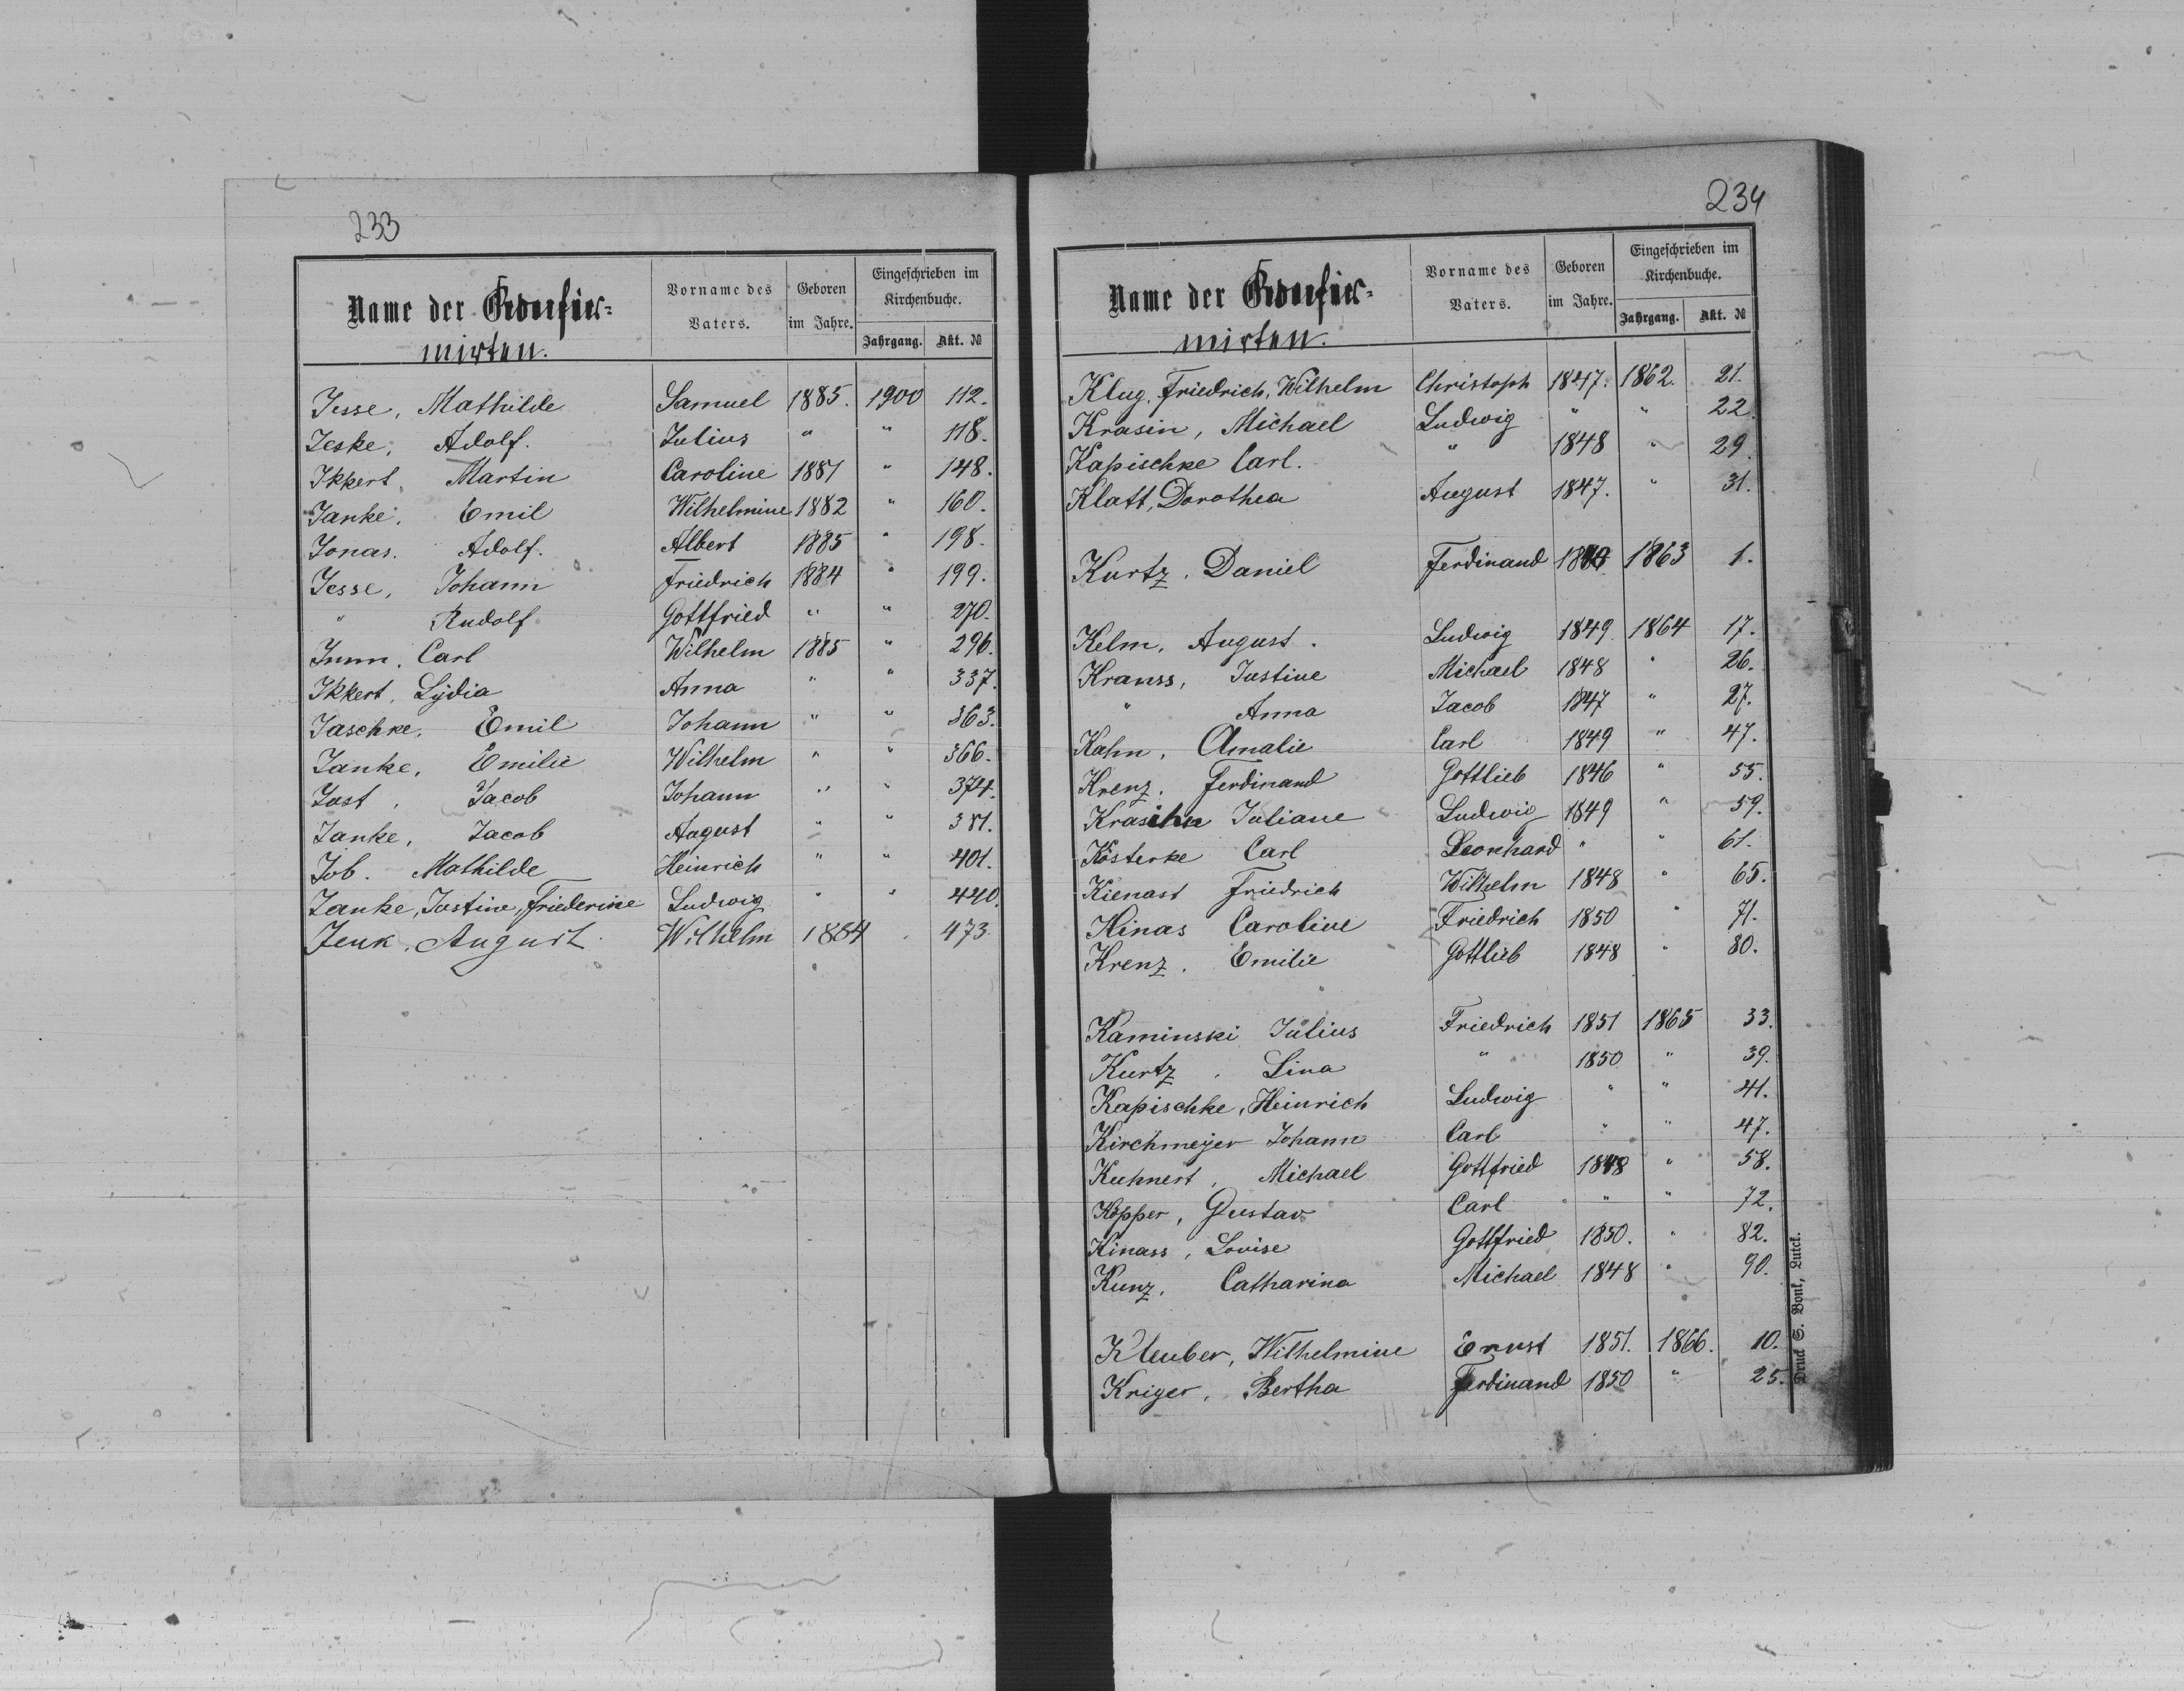 233
Name der Konfir-
mirten.
Vorname des
Vaters.
Geboren
im Jahre.
Eingeschrieben im
Kirchenbuche.
Jahrgang. Akt. №
Jesse, Mathilde Samuel 1885. 1900 112.
Jeske, Adolf. Julius " " 118.
Ikkert, Martin Caroline 1881 " 148.
Janke, Emil Wilhelmine 1882 " 160.
Jonas. Adolf. Albert 1885 " 198.
Jesse, Johann Friedrich 1884 " 199.
" Rudolf Gottfried " " 270.
Imm, Carl Wilhelm 1885 " 296.
Ikkert, Lydia Anna " " 337.
Jaschke, Emil Johann " " 363.
Janke, Emilie Wilhelm " " 366.
Jast, Jacob Johann " " 374.
Janke, Jacob August " " 381.
Job. Mathilde Heinrich " " 401.
Janke, Justine, Friederike Ludwig " " 440.
Jenk, August Wilhelm 1884 . 473
234
Name der Konfir-
mirten.
Vorname des
Vaters.
Geboren
im Jahre.
Eingeschrieben im
Kirchenbuche.
Jahrgang. Akt. №
Klug, Friedrich, Wilhelm Christoph 1847. 1862. 21.
Krasin, Michael Ludwig " " 22.
Kapischke Carl. " 1848 " 29.
Klatt, Dorothea August 1847. " 31.
Kurtz, Daniel Ferdinand 1863 1.
Kelm, August. Ludwig 1849. 1864 17.
Krauss, Justine Michael 1848 " 26.
" Anna Jacob 1847 " 27.
Kahn, Amalie Carl 1849 " 47.
Krenz. Ferdinand Gottlieb 1846 " 55.
Juliane Ludwig 1849 " 59.
Kösterke Carl Leonhard " " 61.
Kienast Friedrich Wilhelm 1848 " 65.
Kinas Caroline Friedrich 1850 " 71.
Krenz. Emilie Gottlieb 1848 " 80.
Kaminski Julius Friedrich 1851 1865 33.
Kurtz. Lina " 1850 " 39.
Kapischke, Heinrich Ludwig " " 41.
Kirchmeyer Johann Carl " " 47.
Kuhnert, Michael Gottfried 1848 " 58.
Köpper, Gustav Carl " " 72.
Kinass, Louise Gottfried 1850. " 82.
Kunz, Catharina Michael 1848 " 90.
Kleuber, Wilhelmine Ernst 1851. 1866. 10.
Kriger, Bertha Ferdinand 1850 " 25.
Druck S. Bonk, Lutck.